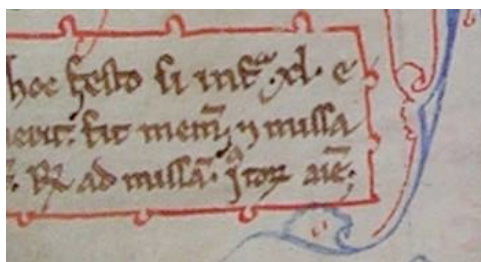 hoc festo si infra .xl. e
uerit. fit mem̄ ⁊ missa
R̷ ad missā. ior aīe.